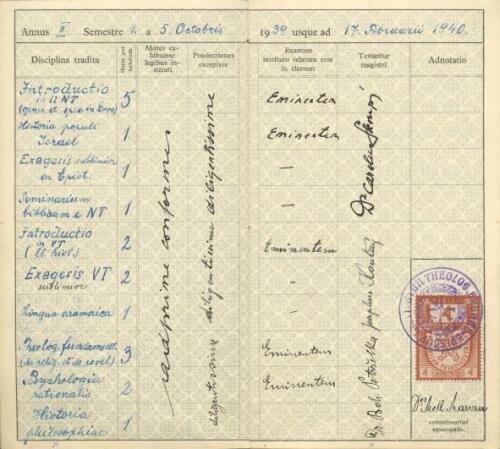 Annus II. Semestre 1. a 5. Octobris 1939 usque ad 17. Februarii 1940.
Disciplina tradita
Horae per hebdom.
Mores exhibuisse legibus instituti
Praelectiones excepisse
Examine instituto relatum esse in classem
Testantur magistri
Adnotatio
Introductio
in NT
5
Eminentem
Historia populi
Israel
1
Eminentem
Exegesis sublimior
ex Epist.
1
—
Seminarium
biblicum e NT
1
—
Introductio
in VT
2
Eminentem
Exegesis VT
sublimior
2
—
Lingua aramaica
1
—
Theolog. fundament.
(de relig. et de revel.)
3
Eminentem
Psychologia
rationalis
2
Eminentem
Historia
philosophiae
1
maxime conformes
diligentissime diligentissime diligentissime
Dr Carolus
Dr. Boh.
THEOLOG.
4 4
commissarius
episcopalis.